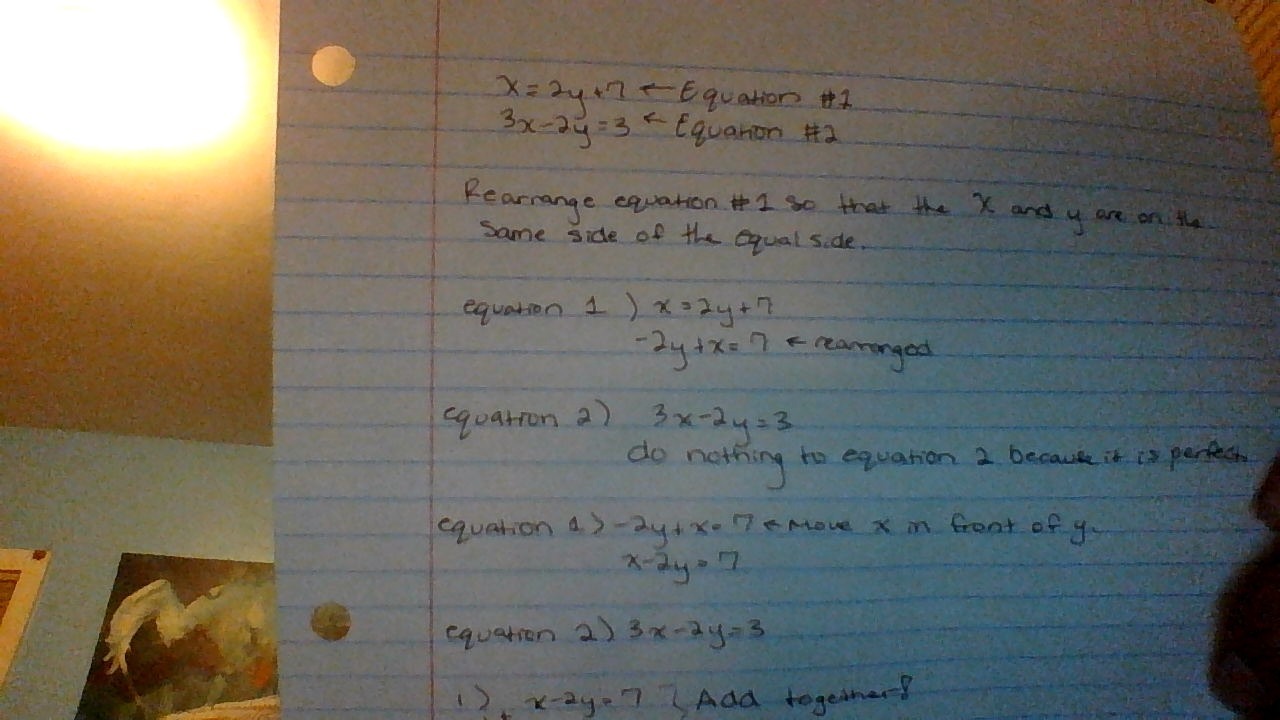 x = 2y + 7 ← Equation #1
3x - 2y = 3 ← Equation #2
Rearrange equation #1 so that the x and y are on the
same side of the equal side.
equation 1) x = 2y + 7
-2y + x = 7 ← rearranged
equation 2) 3x - 2y = 3
do nothing to equation 2 because it is perfect.
equation 1) -2y + x = 7 ← Move x in front of y.
x - 2y = 7
equation 2) 3x - 2y = 3
1) x - 2y = 7 { Add together